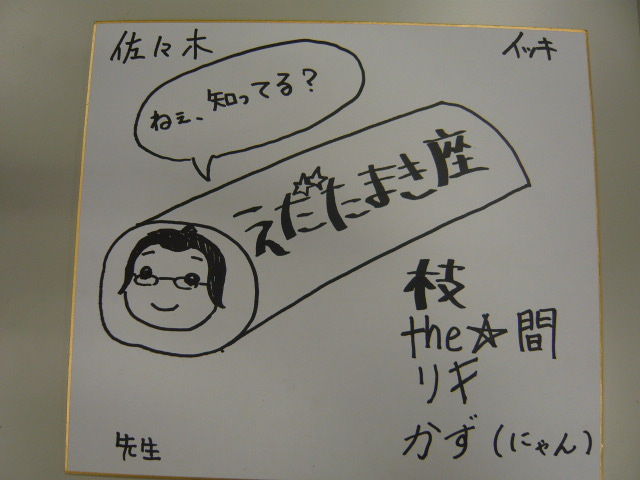 佐々木
イッキ
ねぇ、知ってる?
えだたまき座
枝
the☆間
リキ
かず(にゃん)
先生